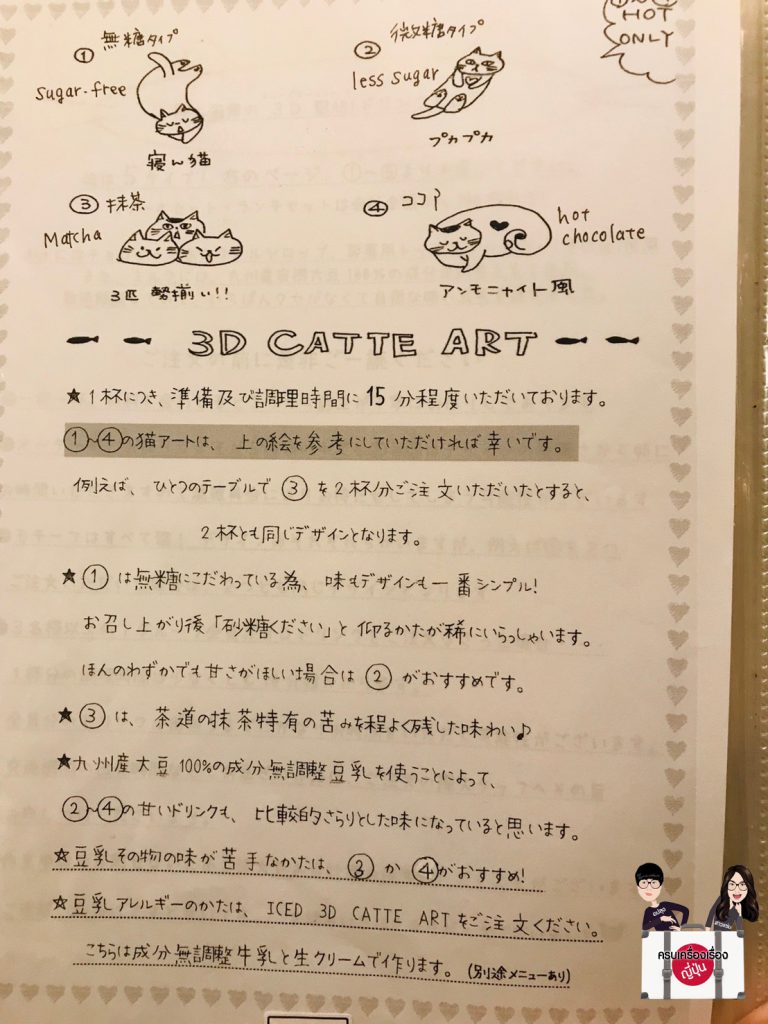 HOT
ONLY
① 無糖タイプ
sugar-free
寝ん猫
② 微糖タイプ
less sugar
プカプカ
③ 抹茶
Matcha
3匹 勢揃い!!
④ ココア
hot
chocolate
アンモニャイト風
3D CATTE ART
★1杯につき、準備及び調理時間に15分程度いただいております。
①~④の猫アートは、上の絵を参考にしていただければ幸いです。
例えば、ひとつのテーブルで③を2杯分ご注文いただいたとすると、
2杯とも同じデザインとなります。
★①は無糖にこだわっている為、味もデザインも一番シンプル!
お召し上がり後「砂糖ください」と仰るかたが稀にいらっしゃいます。
ほんのわずかでも甘さがほしい場合は②がおすすめです。
★③は、茶道の抹茶特有の苦みを程よく残した味わい♪
★九州産大豆100%の成分無調整豆乳を使うことによって、
②~④の甘いドリンクも、比較的さらりとした味になっていると思います。
☆豆乳その物の味が苦手なかたは、③か④がおすすめ!
☆豆乳アレルギーのかたは、ICED 3D CATTE ARTをご注文ください。
こちらは成分無調整牛乳と生クリームで作ります。(別途メニューあり)
ครบเครื่องเรื่อง
ญี่ปุ่น